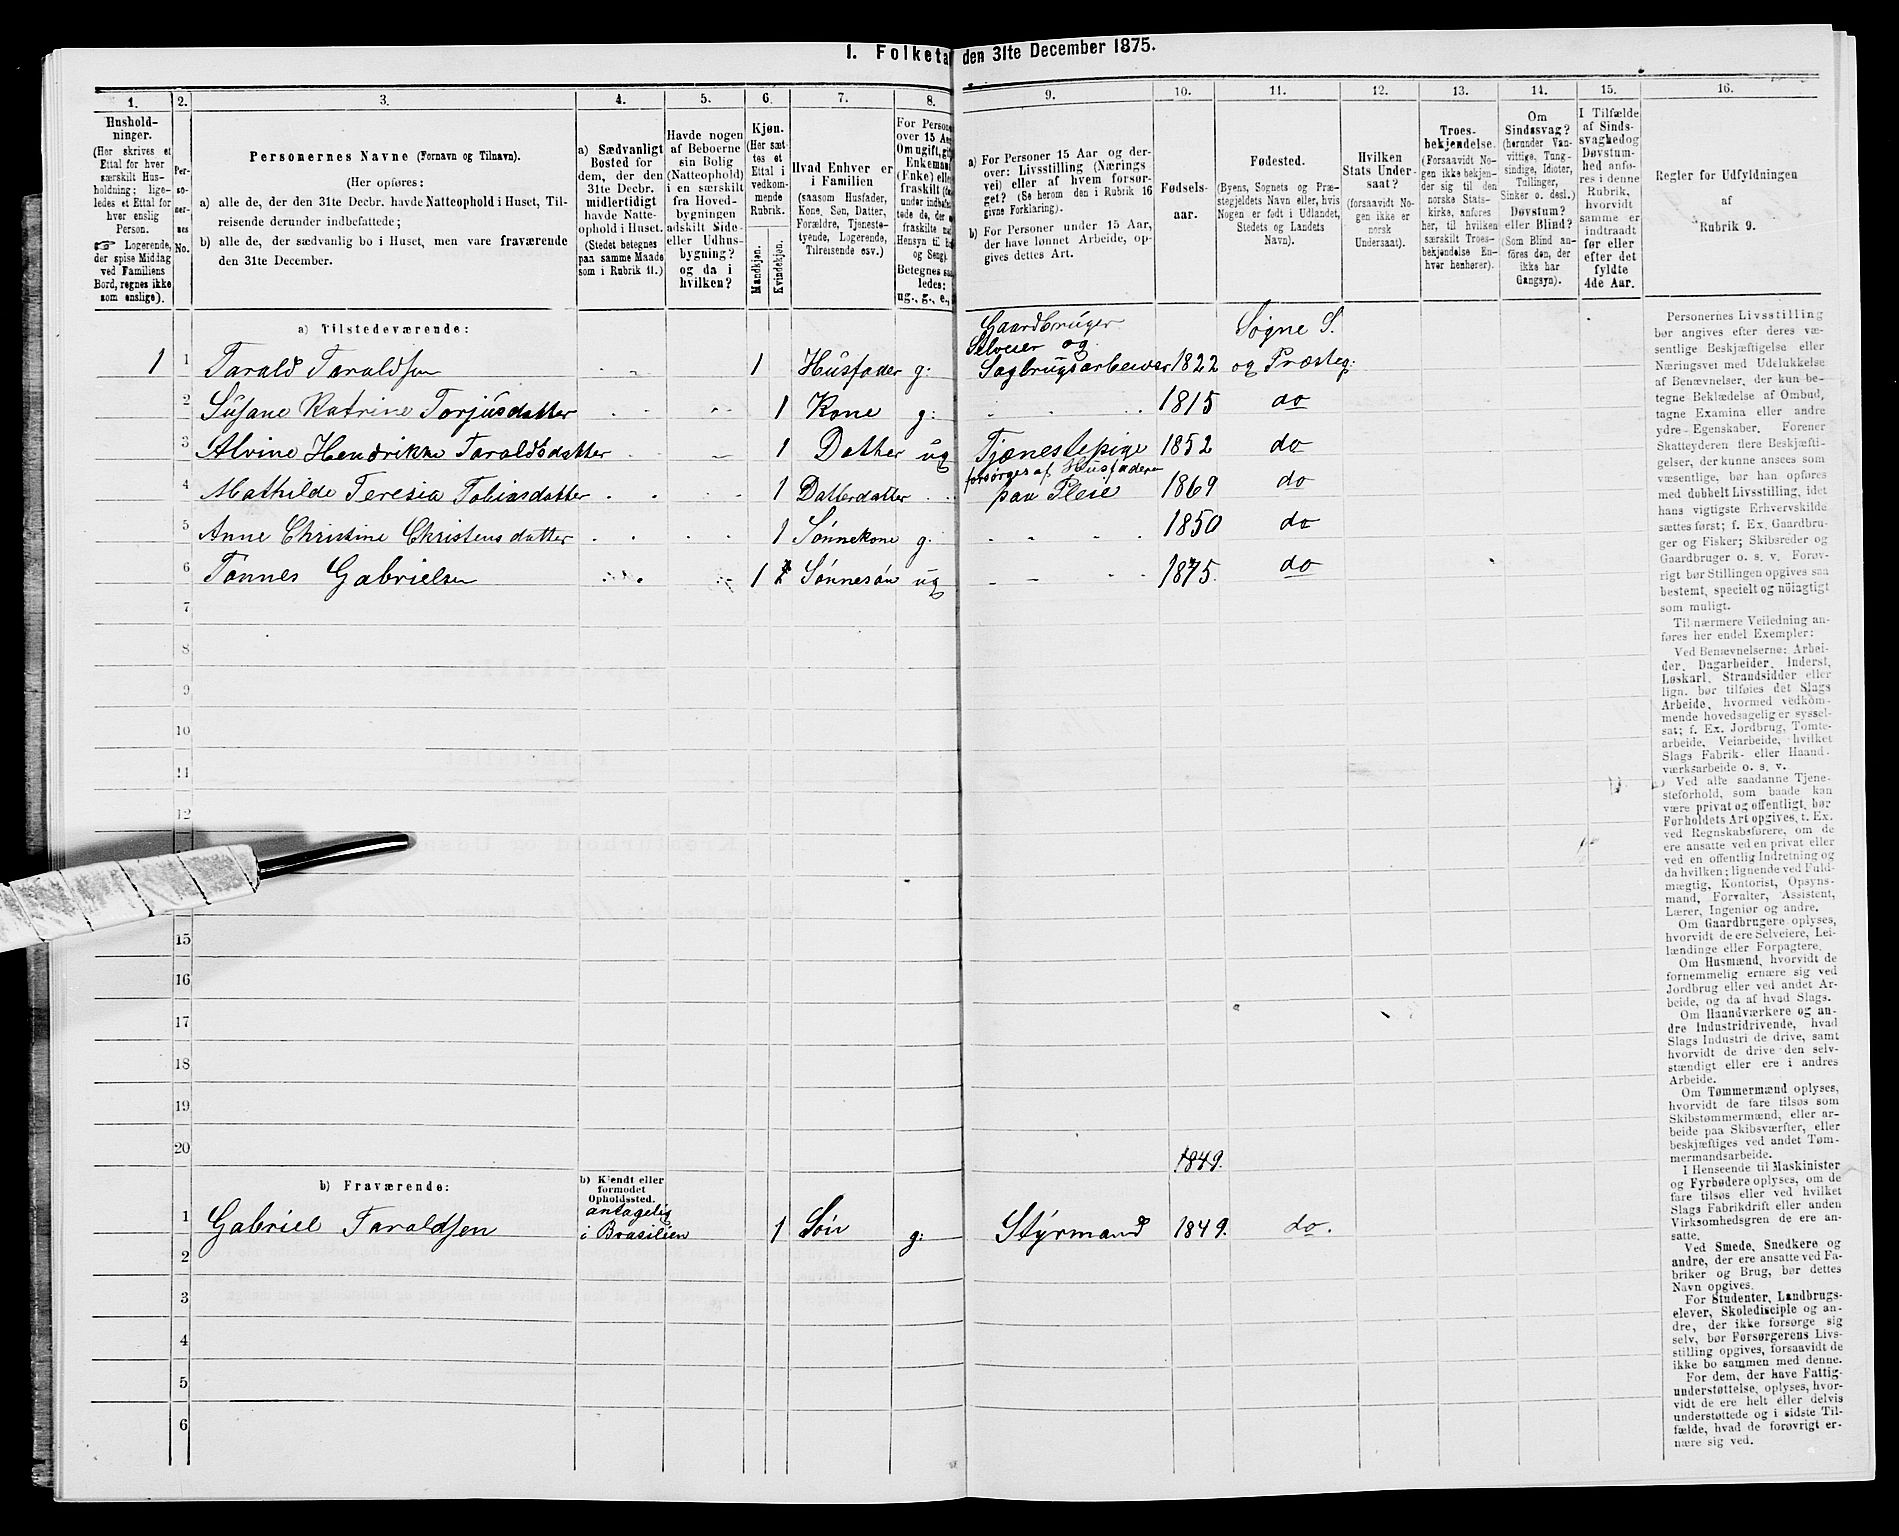 I. Folketæ den 31te December 1875.
1. 2. 3. 4. 5. 6. 7. 8. 9. 10. 11. 12. 13. 14. 15. 16.
Hushold-
ninger.
(Her skrives et
Ettal for hver
særskilt Hus-
holdning; lige-
ledes et Ettal for
hver enslig
Person.
☞ Logerende,
der spise Middag
ved Familiens
Bord, regnes ikke
som enslige).
Per-
so-
ner-
nes
No.
Personernes Navne (Fornavn og Tilnavn).
(Her opføres:
a) alle de, der den 31te Decbr. havde Natteophold i Huset, Til-
reisende derunder indbefattede;
b) alle de, der sædvanlig bo i Huset, men vare fraværende
den 31te December.
a) Sædvanligt
Bosted for
dem, der den
31te Decbr.
midlertidigt
havde Natte-
ophold i Huset.
(Stedet betegnes
paa samme Maade
som i Rubrik 11.)
Havde nogen
af Beboerne
sin Bolig
(Natteophold)
i en særskilt
fra Hoved-
bygningen
adskilt Side-
eller Udhus-
bygning?
og da i
hvilken?
Kjøn.
(Her sæt-
tes et
Ettal i
vedkom-
mende
Rubrik.
Mandkjøn.
Kvindekjøn.
Hvad Enhver er
i Familien
(saasom Husfader,
Kone, Søn, Datter,
Forældre, Tjeneste-
tyende, Logerende,
Tilreisende osv.)
For Person
over 15 Aa
Om ugift, gi
Enkemand
(Enke) elle
fraskilt (
under indbefat-
tede de, der e
fraskilte
Hensyn til B
og Seng).
Betegnes saa
ledes:
ug., g., e.,
a) For Personer 15 Aar og der-
over: Livsstilling (Nærings-
vei) eller af hvem forsør-
get? (Se herom den i Rubrik 16
givne Forklaring).
b) For Personer under 15 Aar,
der have lønnet Arbeide, op-
gives dettes Art.
Fødsels-
aar.
Fødested.
(Byens, Sognets og Præ-
stegjeldets Navn, eller, hvis
Nogen er født i Udlandet,
Stedets og Landets
Navn).
Hvilken
Stats Under-
saat?
(forsaavidt No-
gen ikke er
norsk
Undersaat).
Troes-
bekjendelse.
(Forsaavidt No-
gen ikke bekjen-
der sig til den
norske Stats-
kirke, anføres
her, til hvilken
særskilt Troes-
bekjendelse En-
hver henhører).
Om
Sindssvag?
(herunder Van-
vittige, Tung-
sindige, Idioter,
Tullinger,
Sinker o. desl.)
Døvstum?
eller Blind?
(Som Blind an-
føres den, der
ikke har
Gangsyn).
I Tilfælde
af Sinds-
svaghed og
Døvstum-
hed anfø-
res i denne
Rubrik,
hvorvidt
samme er
indtraadt
før eller
efter det
fyldte
4de Aar.
Regler for Udfyldningen
af
Rubrik 9.
a) Tilstedeværende:
Gaardbruger
Selveier og Søgne S.
1 1 Tarald Taraldsen 1 Husfader g: Sagbrugsarbeider 1822 og Præsteg:
2 Susane Katrine Torjusdatter 1 Kone g: 1815 do
3 Alvine Hendrikke Taraldsdatter 1 Datter ug Tjænestepige 1852 do
forsørges af Husfaderen
4 Mathilde Teresia Tobiasdatter 1 Datterdatter paa Pleie 1869 do
5 Anne Christine Christensdatter 1 Sønnekone g. 1850 do
6 Tønnes Gabrielsen 1 Sønnesøn ug 1875. do
7
8
9
10
11
12
15
16
17
18
19
20 1849.
b) Fraværende:
b) Kjendt eller
formodet
Opholdssted.
antagelig
1 Gabriel Taraldsen i Brasilien 1 Søn g: Styrmand 1849. do.
2
3
4
5
6
Personernes Livsstilling
bør angives efter deres væ-
sentlige Beskjæftigelse eller
Næringsvei med Udelukkelse
af Benævnelser, der kun be-
tegne Beklædelse af Ombud,
tagne Examina eller andre
ydre Egenskaber. Forener
Skatteyderen flere Beskjæfti-
gelser, der kunne ansees som
væsentlige, bør han opføres
med dobbelt Livsstilling, idet
hans vigtigste Erhvervskilde
sættes først; f. Ex. Gaardbru-
ger og Fisker; Skibsreder og
Gaardbruger o. s. v. Forøv-
rigt bør Stillingen opgives saa
bestemt, specielt og nöiagtigt
som muligt.
Til nærmere Veiledning an-
føres her endel Exempler:
Ved Benævnelserne: Arbei-
der, Dagarbeider, Inderst,
Løskarl, Strandsidder eller
lign. bør tilføies det Slags
Arbeide, hvormed vedkom-
mende hovedsagelig er syssel-
sat; f. Ex. Jordbrug, Tomte-
arbeide, Veiarbeide, hvilket
Slags Fabrik- eller Haand-
værksarbeide o. s. v.
Ved alle saadanne Tjene-
steforhold, som baade kan
være privat og offentligt, bør
Forholdets Art opgives, t. Ex.
ved Regnskabsførere, om de
ere ansatte ved en privat eller
ved en offentlig Indretning og
da hvilken; lignende ved Fuld-
mægtig, Kontorist, Opsyns-
mand, Forvalter, Assistent,
Lærer, Ingeniør og andre.
Om Gaardbrugere oplyses,
hvorvidt de ere Selveiere, Lei-
lændinge eller Forpagtere.
Om Husmænd, hvorvidt de
fornemmelig ernære sig ved
Jordbrug eller ved andet Ar-
beide, og da af hvad Slags.
Om Haandværkere og an-
dre Industridrivende, hvad
Slags Industri de drive, samt
hvorvidt de drive den selv-
stændigt eller ere i andres
Arbeide.
Om Tømmermænd oplyses,
hvorvidt de fare tilsøs som
Skibstømmermænd, eller ar-
beide paa Skibsværfter, eller
beskjæftiges ved andet Tøm-
mermandsarbeide.
I Henseende til Maskinister
og Fyrbødere oplyses, om de
fare tilsøs eller ved hvilket
Slags Fabrikdrift eller anden
Virksomhedsgren de ere an-
satte.
Ved Smede, Snedkere og
andre, der ere ansatte ved Fa-
briker og Brug, bør dettes
Navn opgives.
For Studenter, Landbrugs-
elever, Skoledisciple og an-
dre, der ikke forsørge sig
selv, bør Forsørgerens Livs-
stilling opgives, forsaavidt de
ikke bo sammen med denne.
For dem, der have Fattig-
understøttelse, oplyses, hvor-
vidt de ere helt eller delvis
understøttede og i sidste Til-
fælde, hvad de forøvrigt er-
nære sig ved.